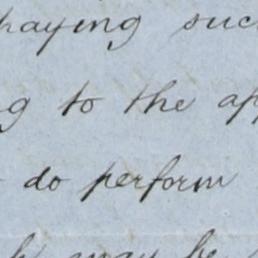 paying suc
g to the ap
do perform
may be